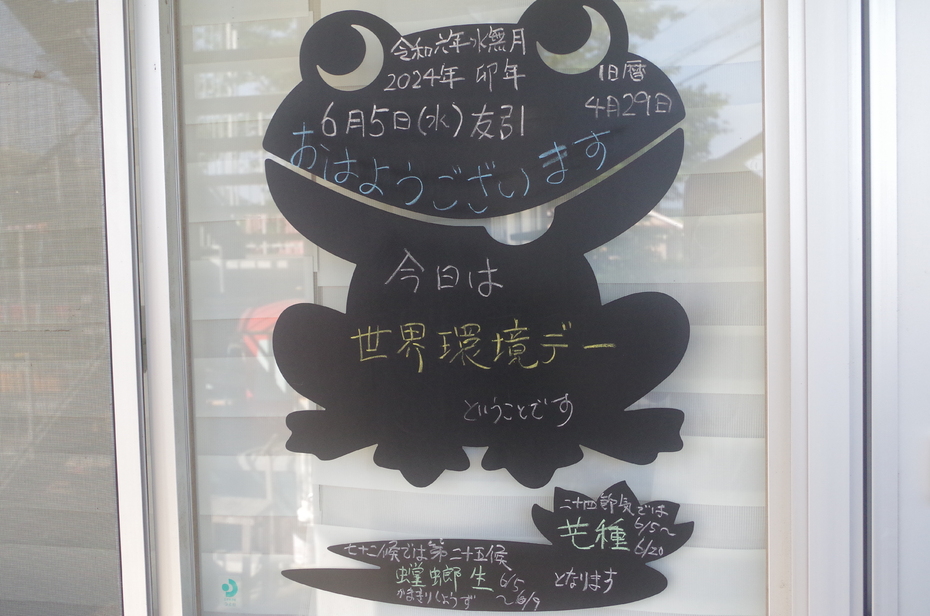 令和六年水無月
2024年 卯年
6月5日(水)友引
旧暦
4月29日
おはようございます
今日は
世界環境デー
ということです
二十四節気では
芒種 6/5〜
6/20
となります
七十二候では第二十五候
蟷螂生 6/5
かまきりしょうず 〜6/9